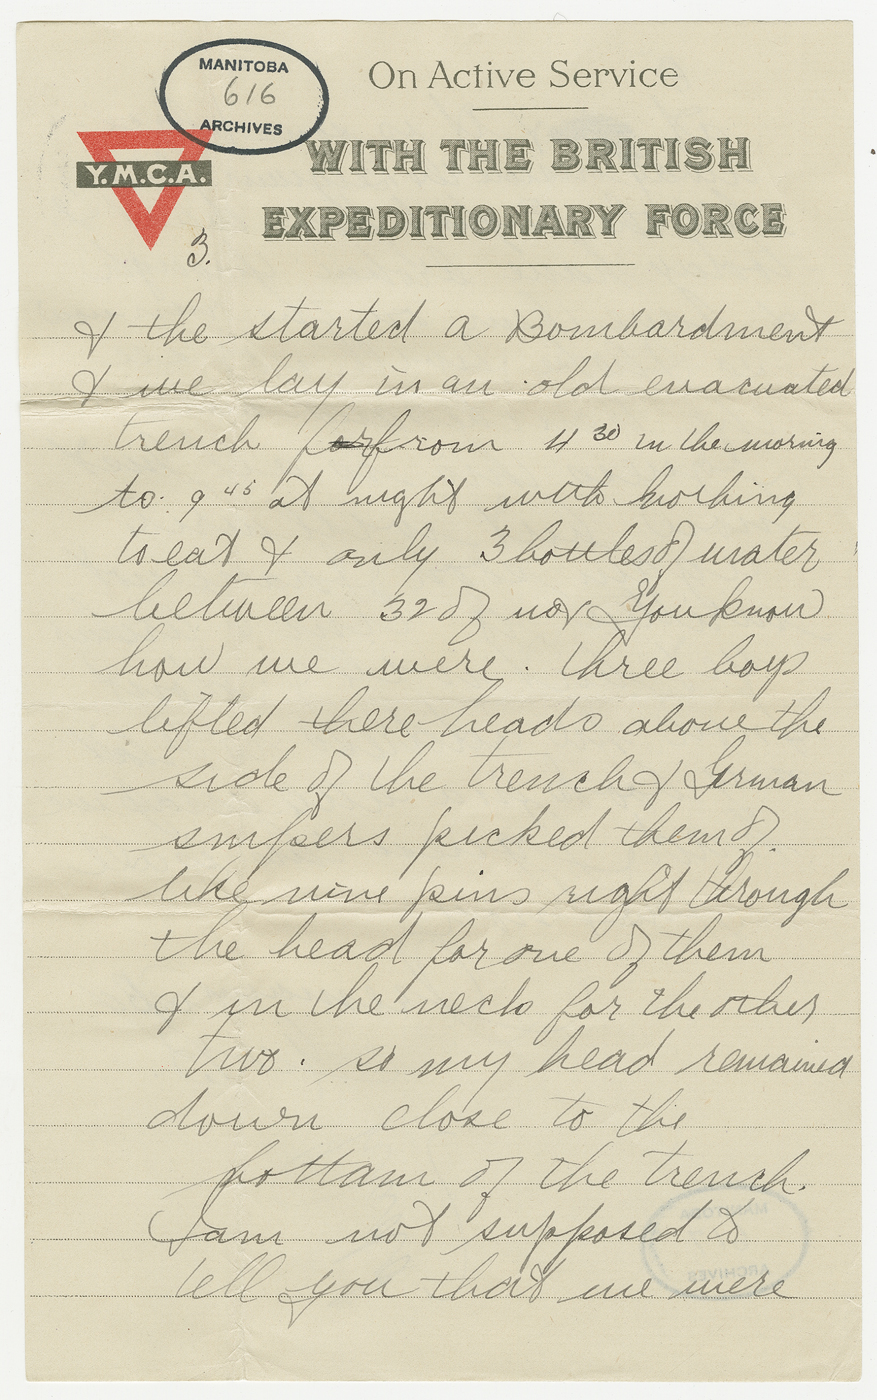 On Active Service
MANITOBA
616
ARCHIVES
WITH THE BRITISH
EXPEDITIONARY FORCE
Y.M.C.A.
3.
& the started a Bombardment
& we lay in an old evacuated
trench for from 4 30 in the morning
to 9 45 at night with nothing
to eat & only 3 bottles of water
between 32 of us & you know
how we were. three boys
lifted there heads above the
side of the trench & German
snipers picked them of
like nine pins right through
the head for one of them
& in the neck for the other
two. so my head remained
down close to the
bottam of the trench.
I am not supposed to
tell you that we were